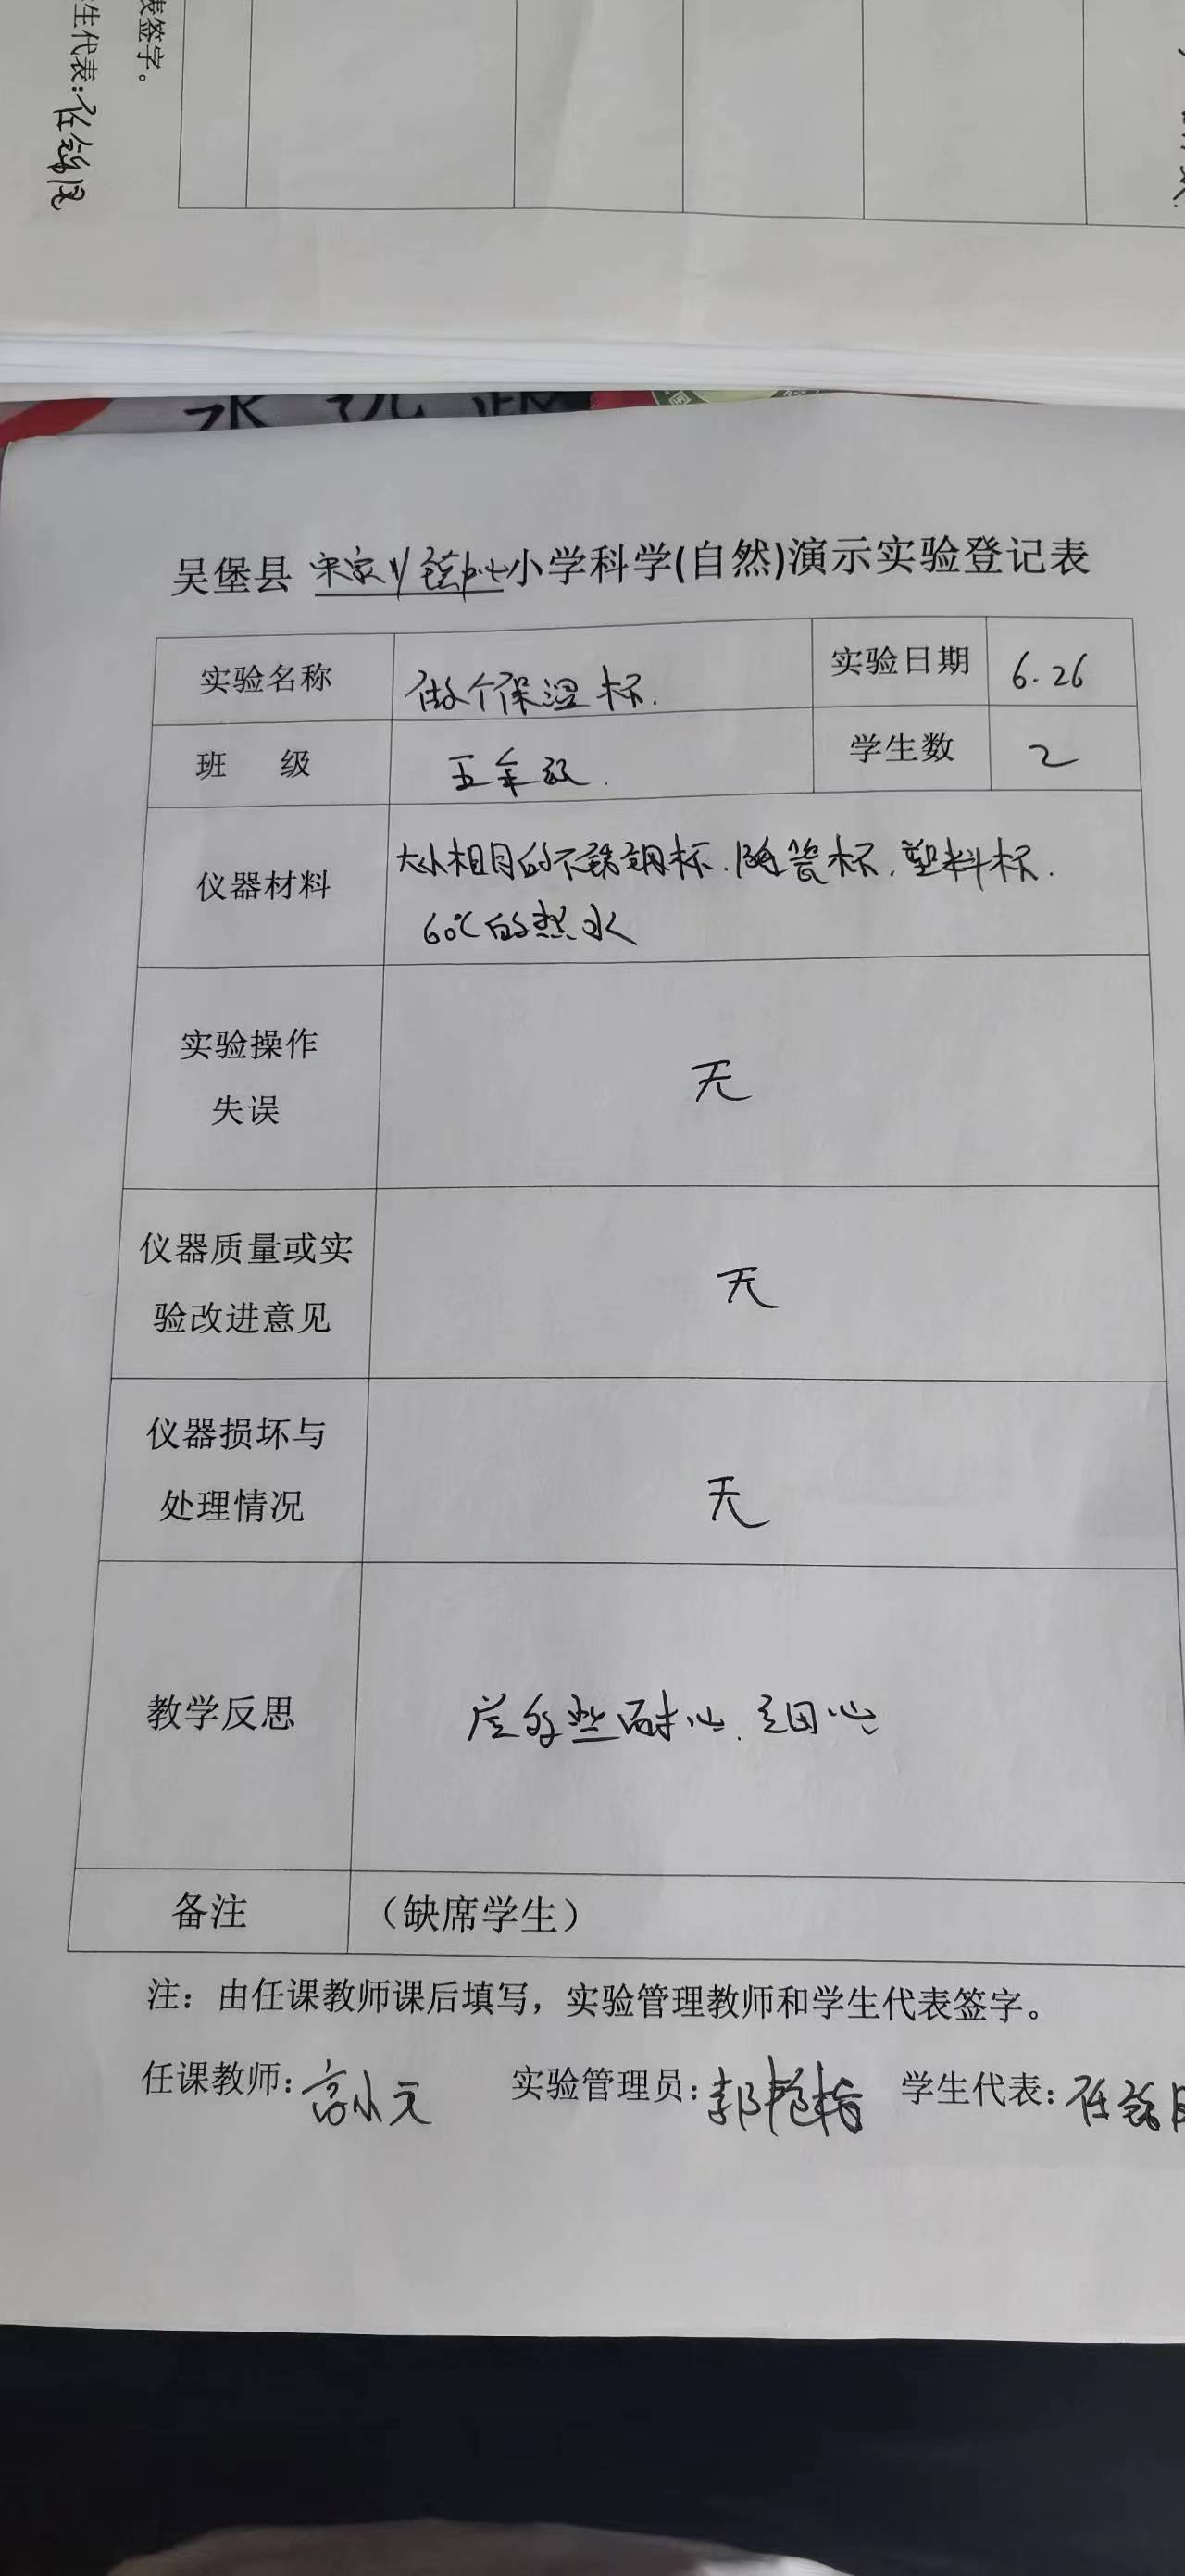 表签字。
生代表：任
吴堡县 宋家川镇中心小学科学(自然)演示实验登记表
实验名称 做个保温杯. 实验日期 6.26
班 级 五年级. 学生数 2
仪器材料 大小相同的不锈钢杯.陶瓷杯.塑料杯.
60℃的热水
实验操作
失误
无
仪器质量或实
验改进意见
无
仪器损坏与
处理情况
无
教学反思 应多些耐心.细心
备注 （缺席学生）
注：由任课教师课后填写，实验管理教师和学生代表签字。
任课教师：高小元 实验管理员：郭艳梅 学生代表：任